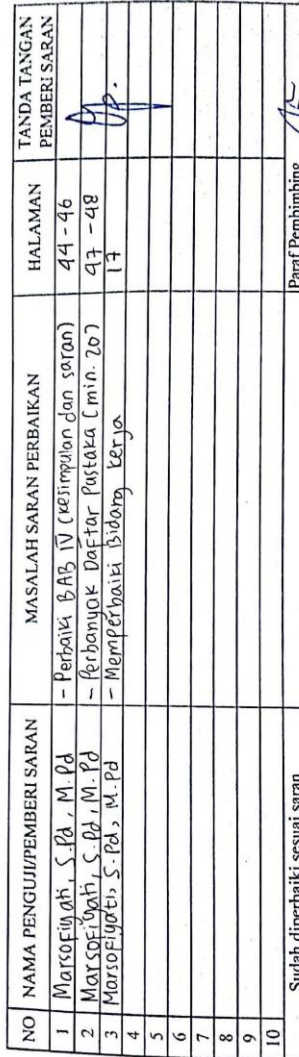 NO NAMA PENGUJI/PEMBERI SARAN MASALAH SARAN PERBAIKAN HALAMAN TANDA TANGAN PEMBERI SARAN
1 Marsofiyati, S.Pd, M.Pd - Perbaiki BAB IV (kesimpulan dan saran) 44-46
2 Marsofiyati, S.Pd, M.Pd - Perbanyak Daftar Pustaka (min. 20) 47-48
3 Marsofiyati, S.Pd, M.Pd - Memperbaiki Bidang kerja 17
4
5
6
7
8
9
10
Sudah diperbaiki sesuai saran Paraf Pembimbing